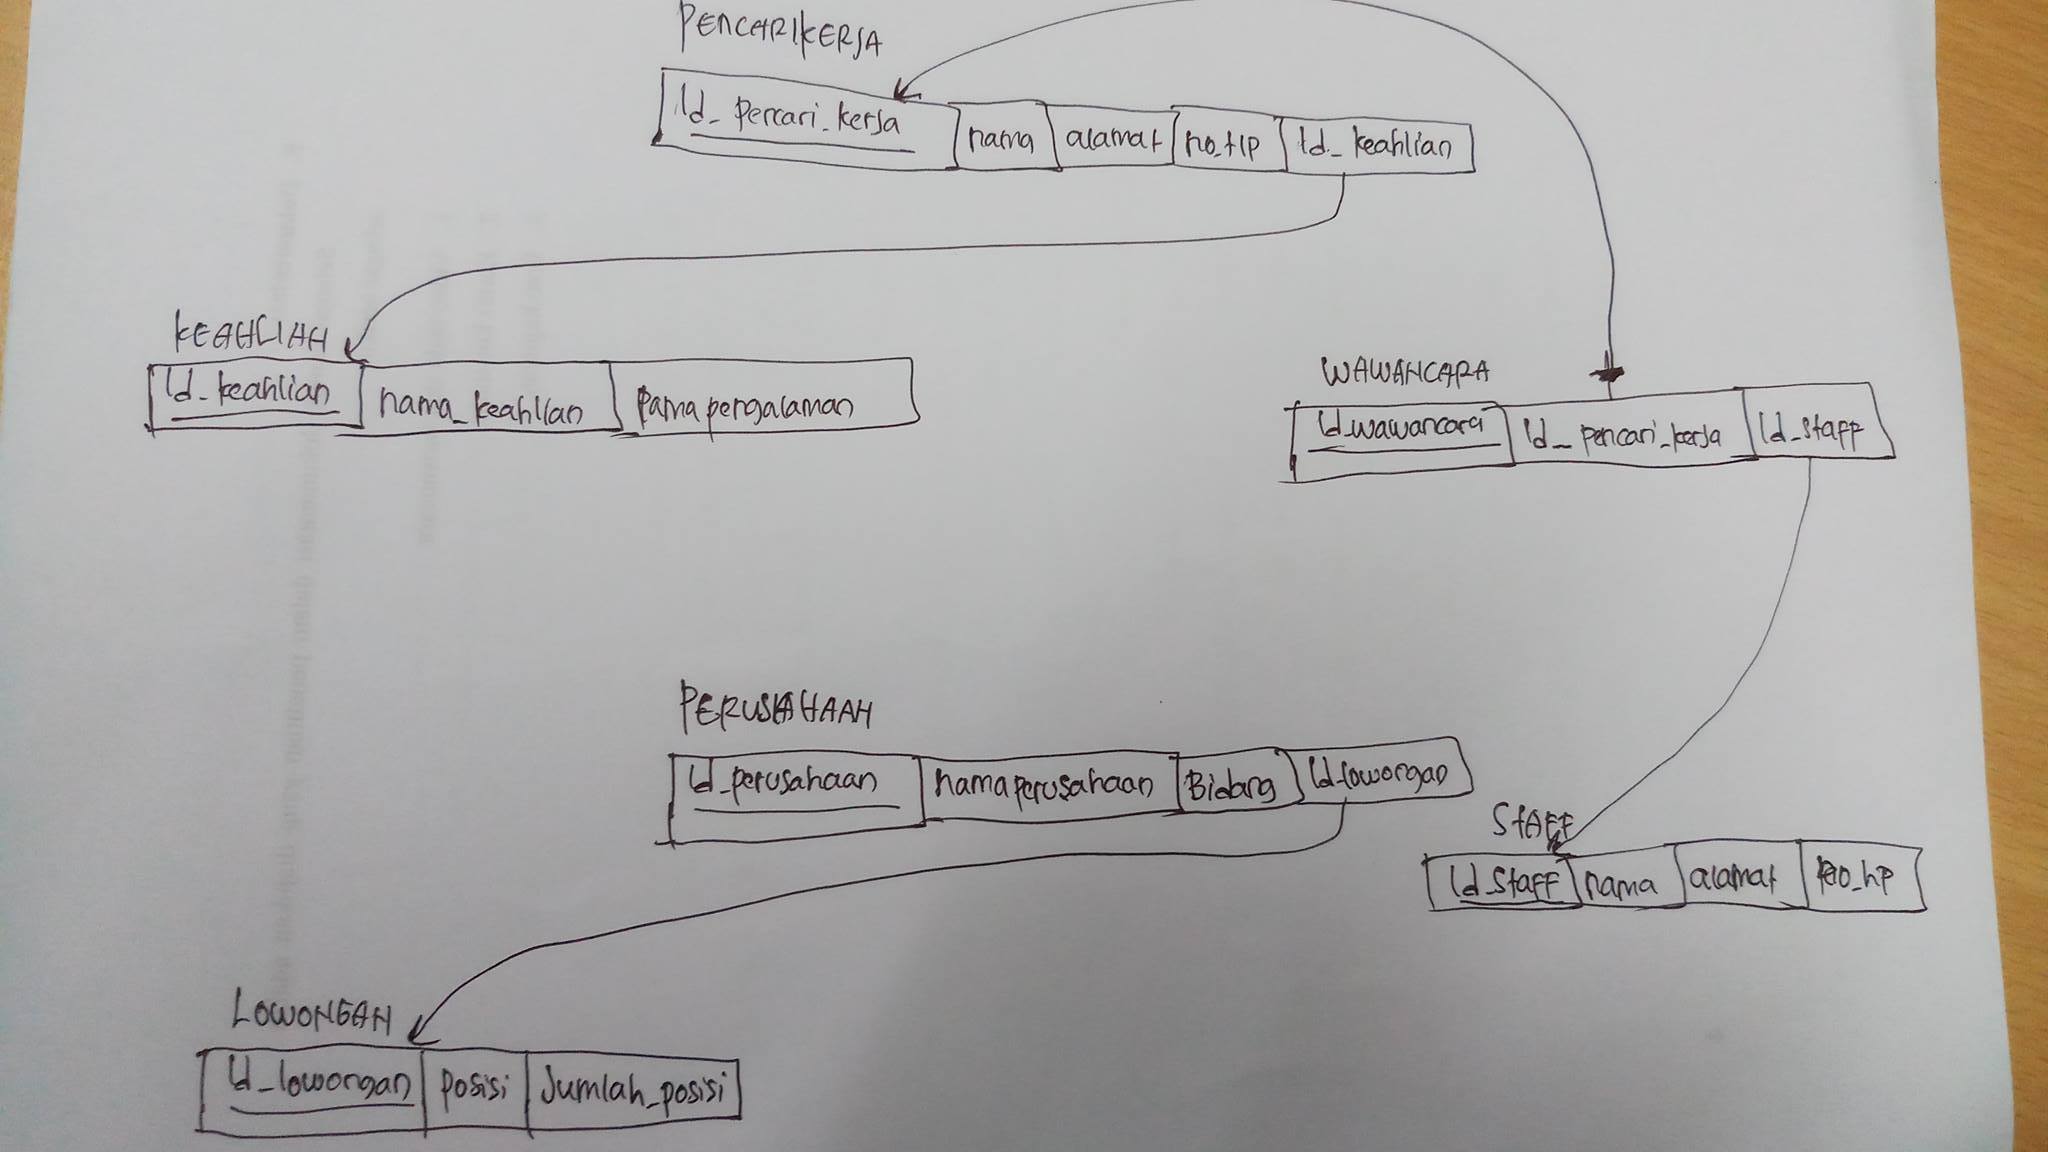 PENCARIKERJA
Id_pencari_kerja nama alamat no_tlp Id_keahlian
KEAHLIAN
Id_keahlian nama_keahlian pengalaman
WAWANCARA
Id_wawancara Id_pencari_kerja Id_staff
PERUSAHAAN
Id_perusahaan nama perusahaan Bidang Id_lowongan
STAFF
Id_staff nama alamat no_hp
LOWONGAN
Id_lowongan posisi Jumlah_posisi